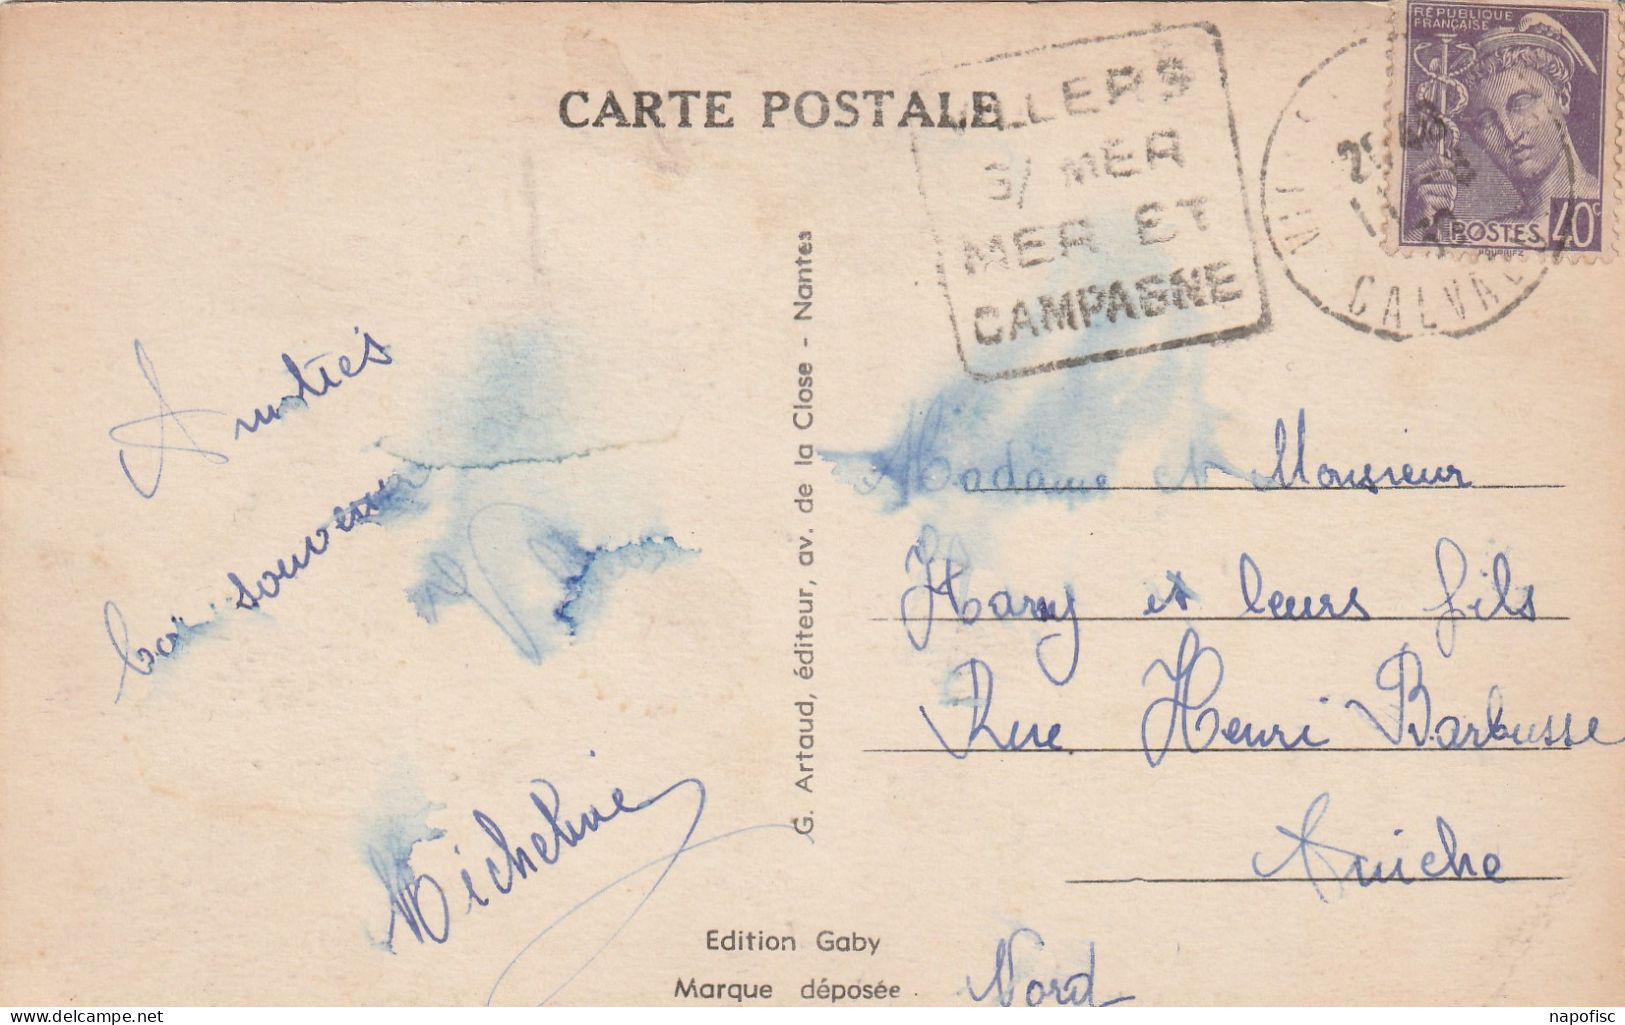 CARTE POSTALE
VILLERS
S/ MER
MER ET
CAMPAGNE
RÉPUBLIQUE
FRANÇAISE
POSTES 40c
CALVADOS
Amitiés
bon souvenir
Micheline
G. Artaud, éditeur, av. de la Close - Nantes
Madame et Monsieur
Hary et leurs fils
Rue Henri Barbusse
Aniche
Nord
Edition Gaby
Marque déposée
delcampe.net
napofisc